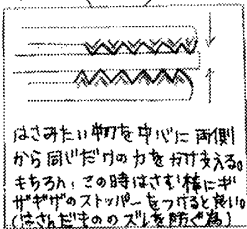 はさみたい物を中心に両側
から同じだけの力をかけ支える。
もちろん、この時はさむ棒にギ
ザギザのストッパーをつけると良い。
(はさんだもののズレを防ぐ為)